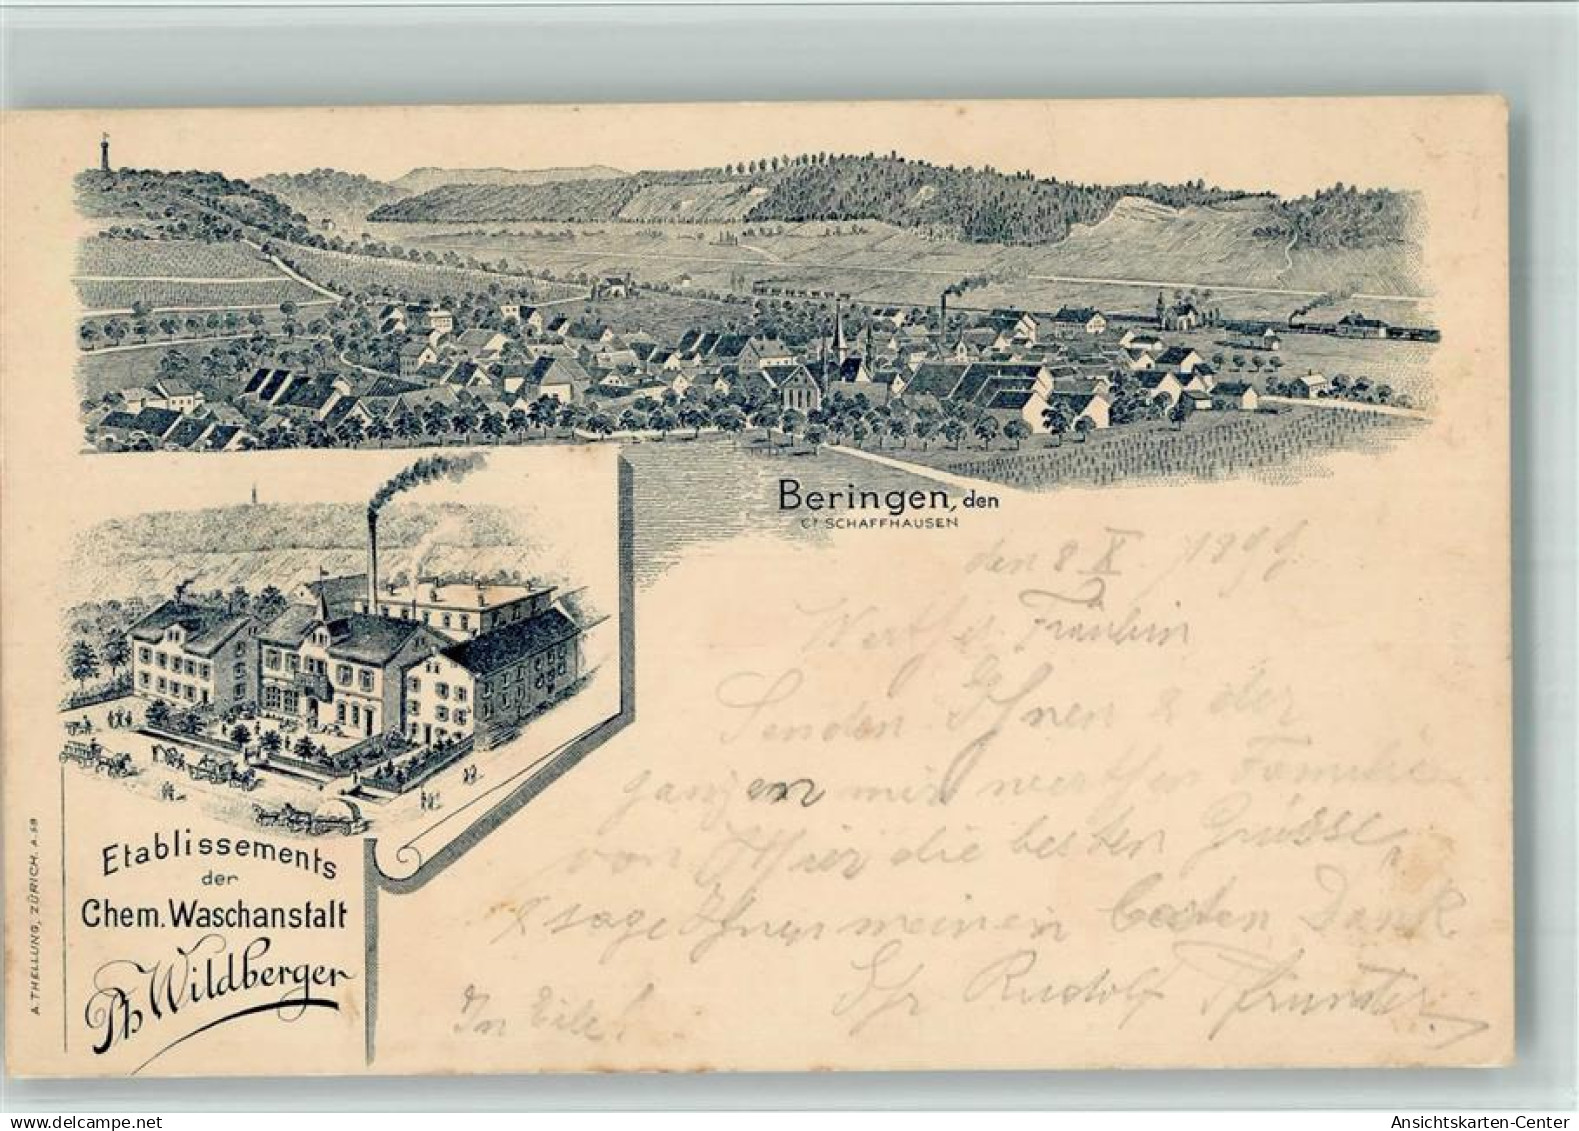 Beringen, den
Ct SCHAFFHAUSEN
den 8. X. 1899
Werthes Fräulein
Senden Ihnen & der
ganzen mir werthen Familie
von Hier die besten Grüsse,
& sage Ihnen meinen besten Dank.
Ihr Rudolf
In Eile!
Etablissements
der
Chem. Waschanstalt
Ph Wildberger
A. THELLUNG, ZÜRICH. A. 59
www.delcampe.net
Ansichtskarten-Center